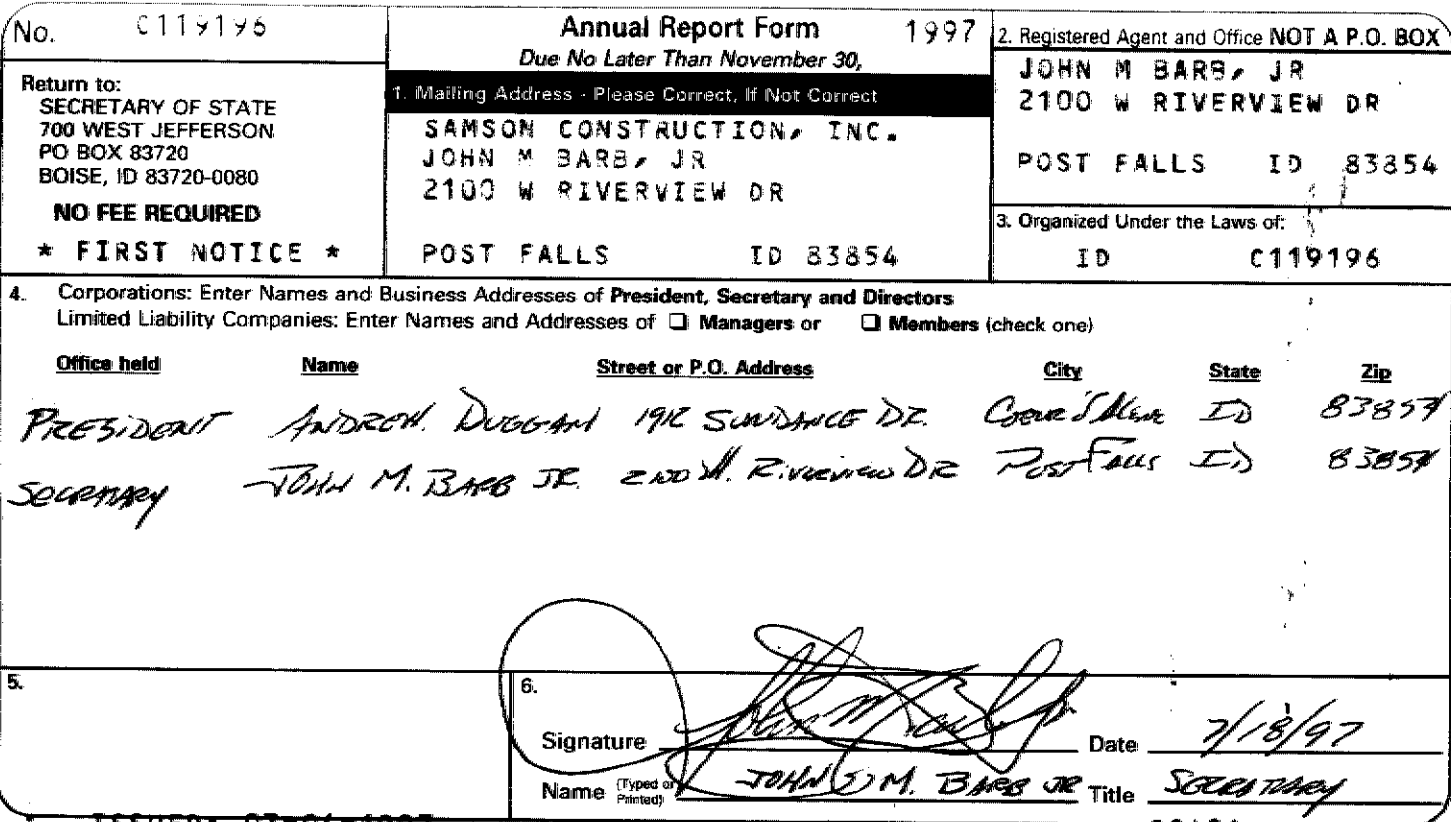 No. C119196
Return to:
SECRETARY OF STATE
700 WEST JEFFERSON
PO BOX 83720
BOISE, ID 83720-0080
NO FEE REQUIRED
* FIRST NOTICE *
Annual Report Form 1997
Due No Later Than November 30,
1. Mailing Address - Please Correct, If Not Correct
SAMSON CONSTRUCTION, INC.
JOHN M BARB, JR
2100 W RIVERVIEW DR
POST FALLS ID 83854
2. Registered Agent and Office NOT A P.O. BOX
JOHN M BARB, JR
2100 W RIVERVIEW DR
POST FALLS ID 83854
3. Organized Under the Laws of:
ID C119196
4. Corporations: Enter Names and Business Addresses of President, Secretary and Directors
Limited Liability Companies: Enter Names and Addresses of ❏ Managers or ❏ Members (check one)
Office held Name Street or P.O. Address City State Zip
PRESIDENT ANDREW. DUGGAN 1912 SUNDANCE DR. Coeur d'Alene ID 83854
SECRETARY JOHN M. BARB JR. 2100 W. RIVERVIEW DR POST FALLS ID 83854
5.
6.
Signature John M Barb Jr Date 7/18/97
Name (Typed or Printed) JOHN M. BARB JR Title SECRETARY